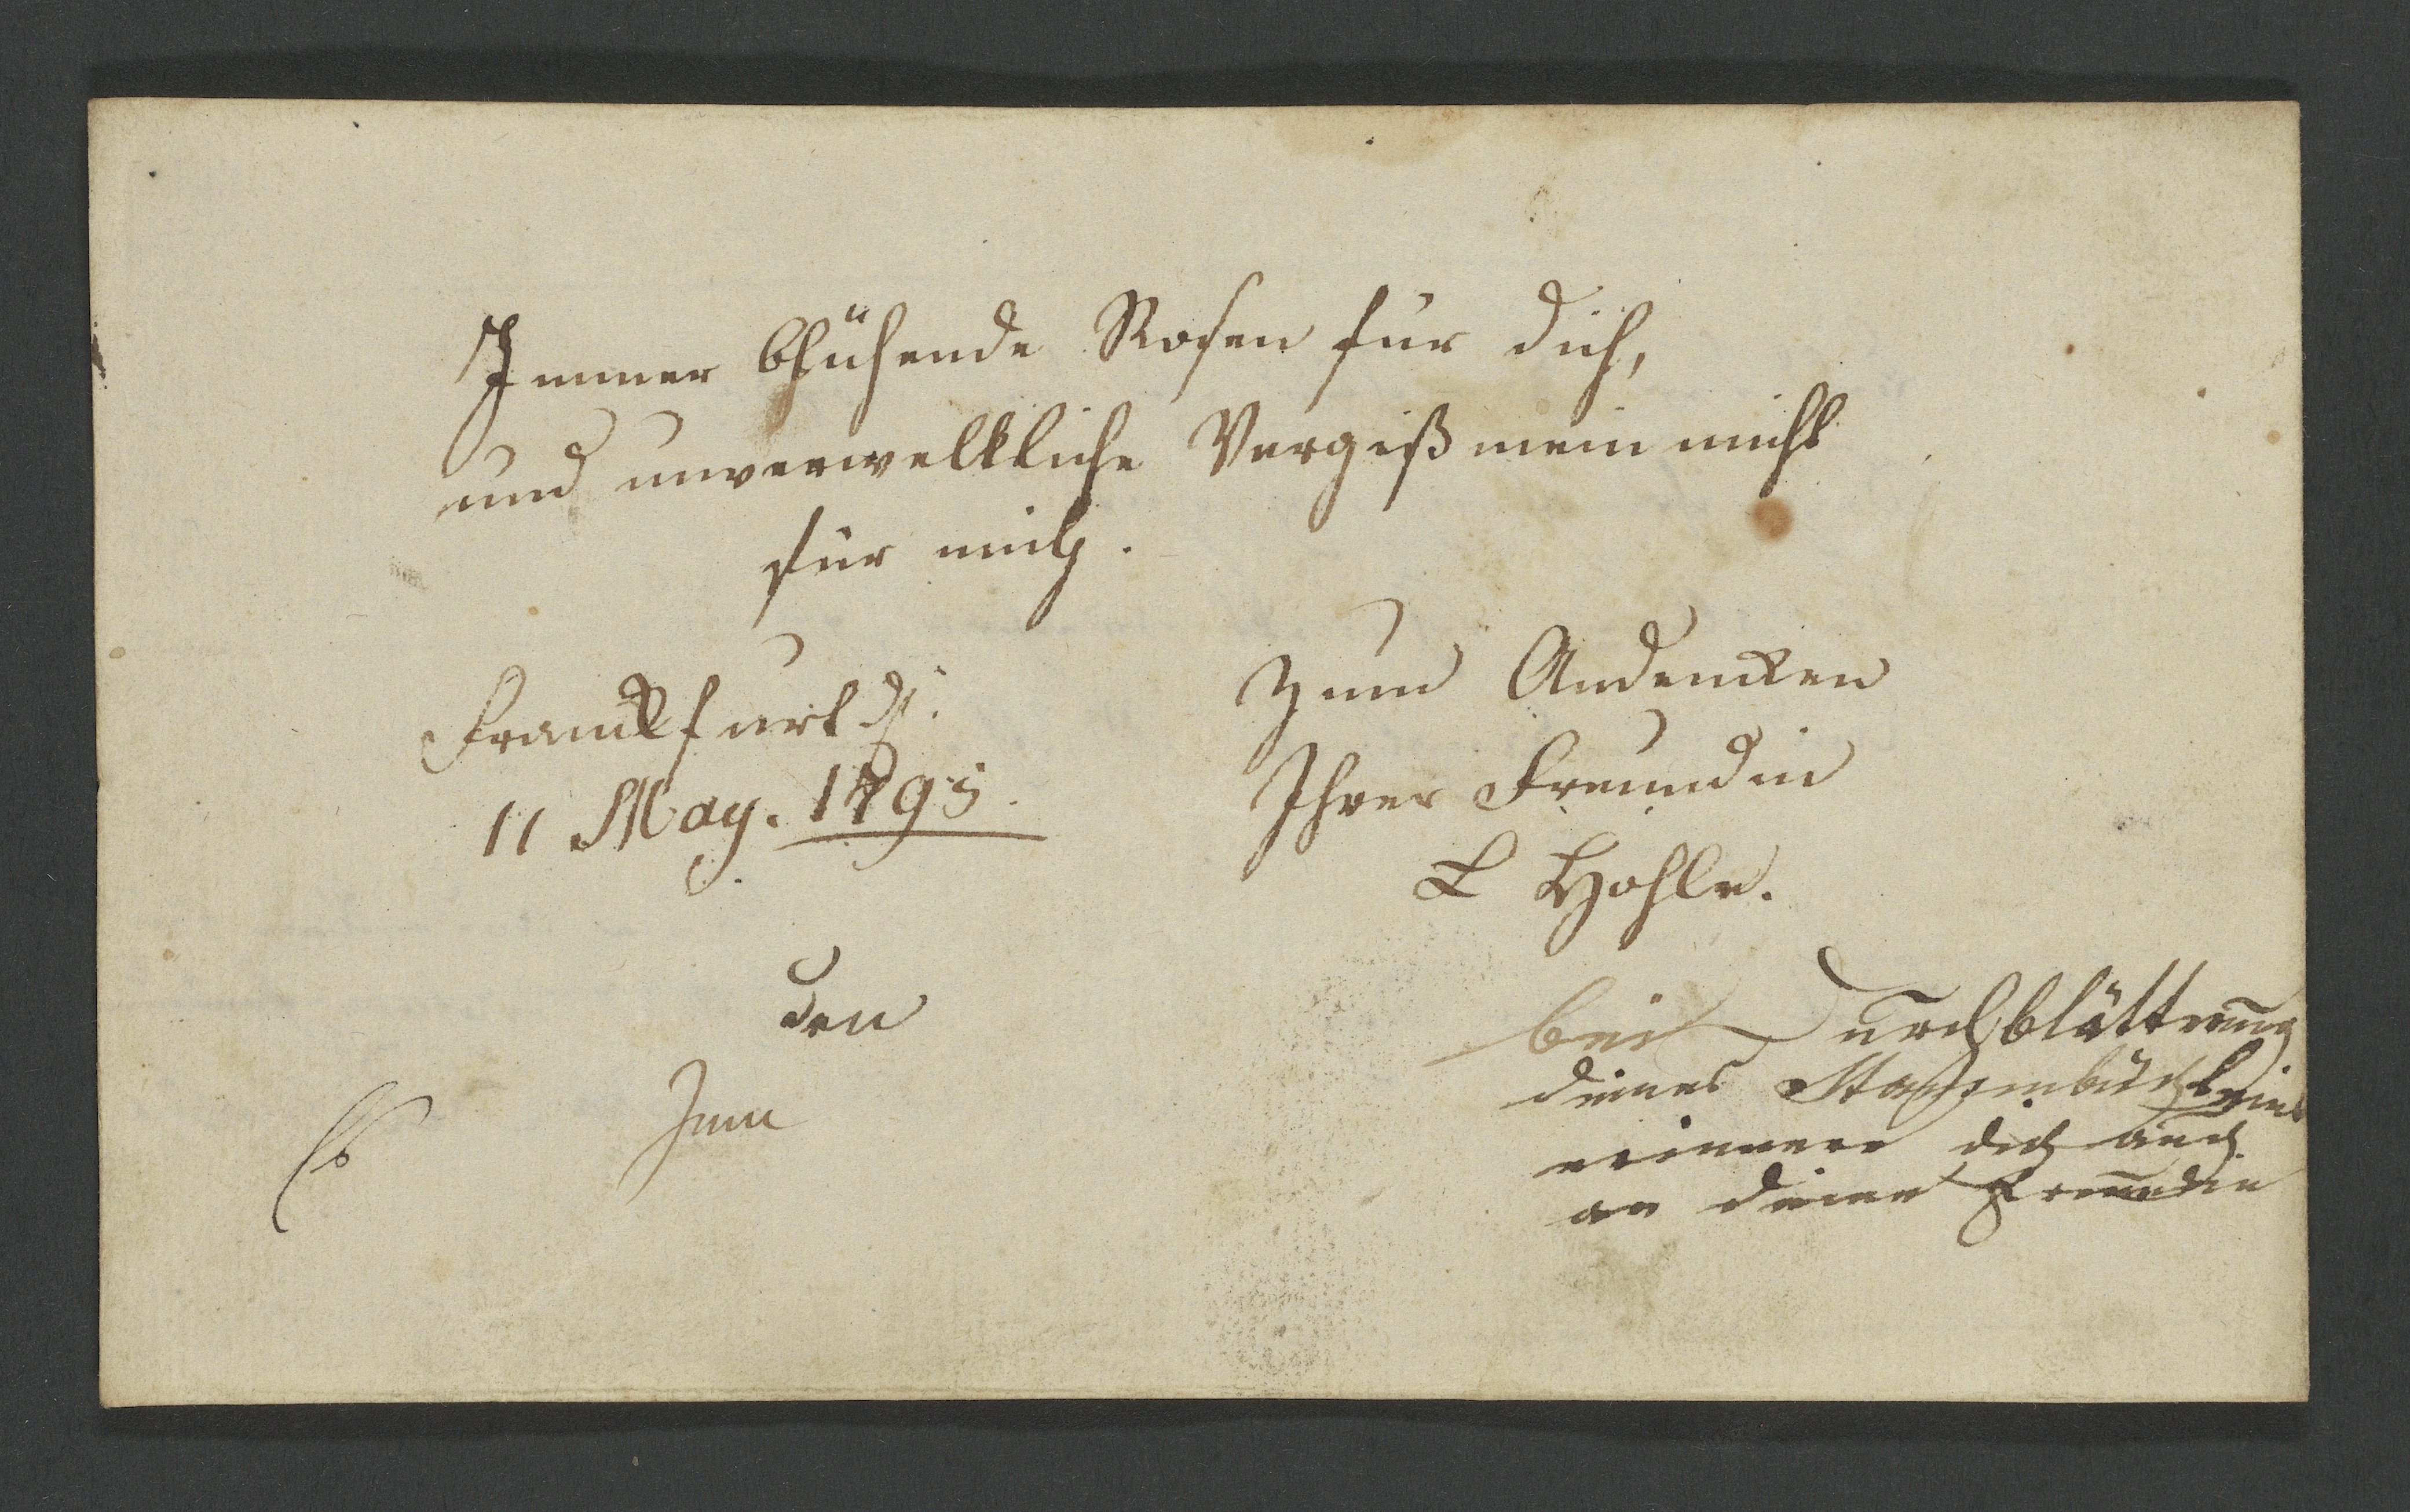 Immer blühende Rosen für dich,
und unverwelkliche Vergiß mein nicht
für mich.
Franckfurt d.
11 May. 1795.
Zum Andencken
Ihrer Freundin
L Hohle.
den
Juni
bei Durchblättrung
deines Stammbüchleins
erinnere dich auch
an deine Freundin